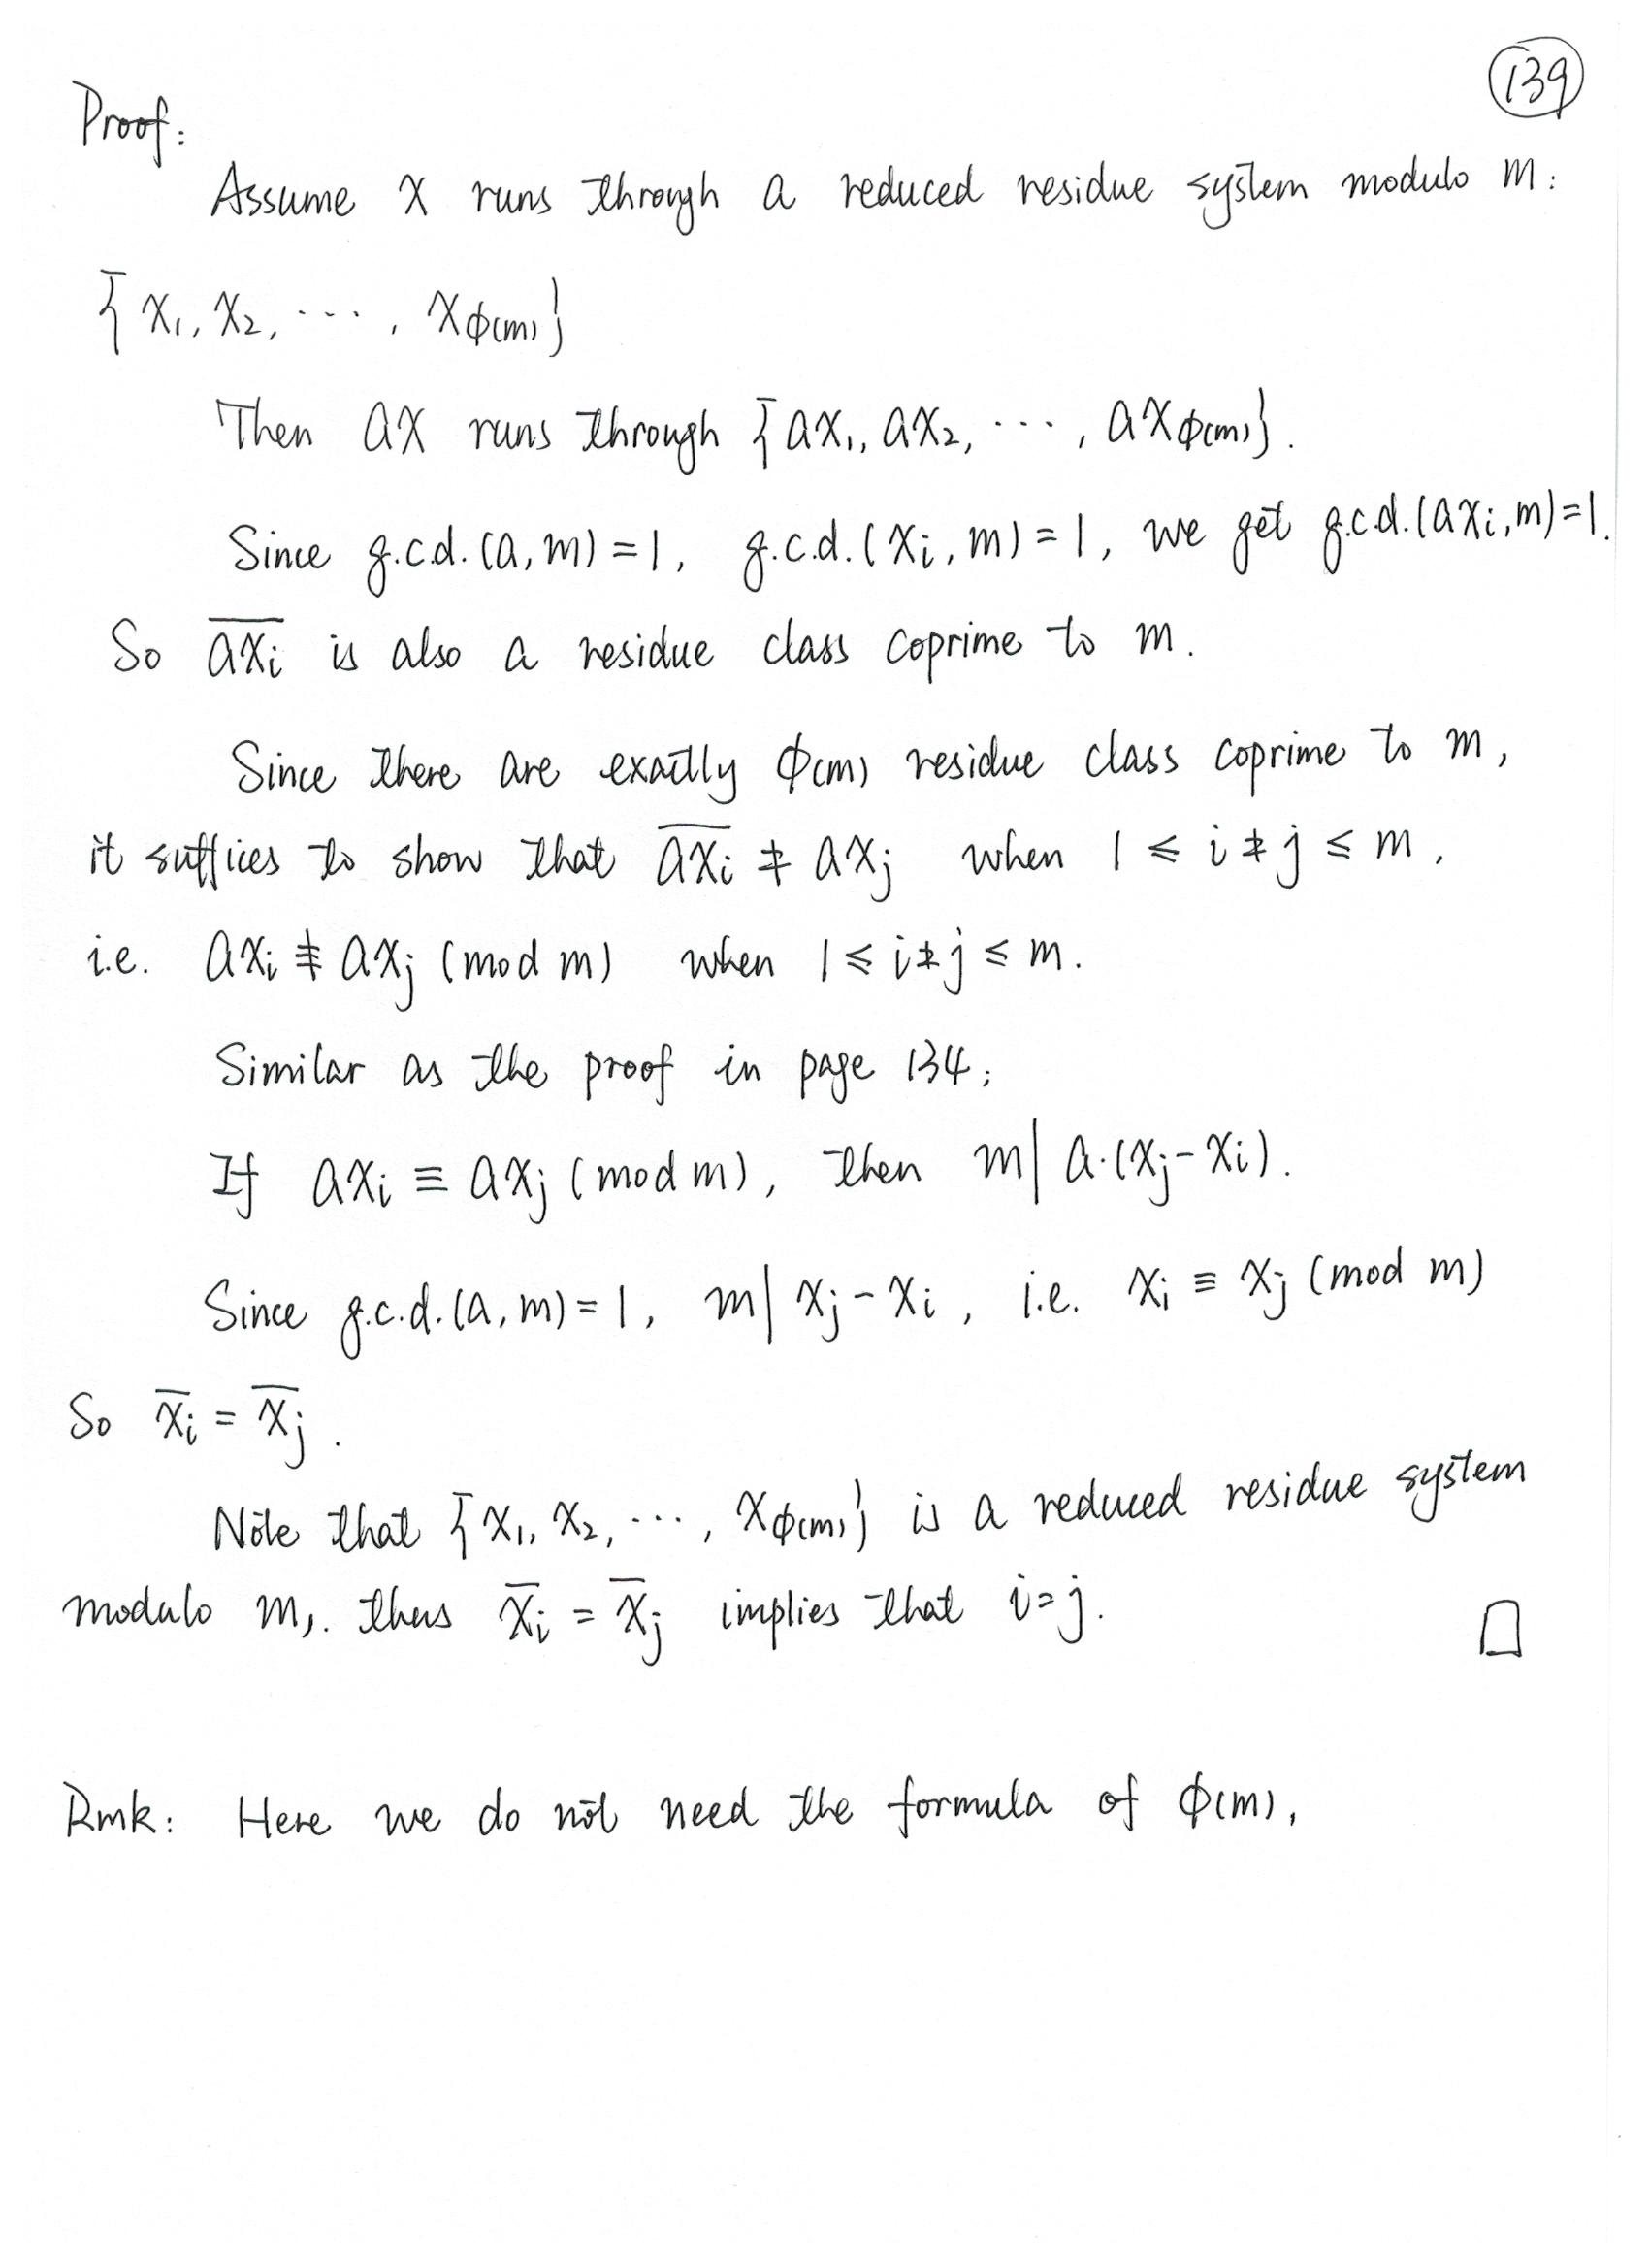 139
Proof:
Assume x runs through a reduced residue system modulo m:
{x₁, x₂, ⋯, x_φ(m)}
Then ax runs through {ax₁, ax₂, ⋯, ax_φ(m)}.
Since g.c.d.(a, m) = 1, g.c.d.(xᵢ, m) = 1, we get g.c.d.(axᵢ, m) = 1.
So \overline{axᵢ} is also a residue class coprime to m.
Since there are exactly φ(m) residue class coprime to m,
it suffices to show that \overline{axᵢ} ≠ axⱼ when 1 ≤ i ≠ j ≤ m,
i.e. axᵢ ≢ axⱼ (mod m) when 1 ≤ i ≠ j ≤ m.
Similar as the proof in page 134:
If axᵢ ≡ axⱼ (mod m), then m | a·(xⱼ - xᵢ).
Since g.c.d.(a, m) = 1, m | xⱼ - xᵢ, i.e. xᵢ ≡ xⱼ (mod m)
So \overline{xᵢ} = \overline{xⱼ}.
Note that {x₁, x₂, ⋯, x_φ(m)} is a reduced residue system
modulo m,. thus \overline{xᵢ} = \overline{xⱼ} implies that i = j. □
Rmk: Here we do not need the formula of φ(m),